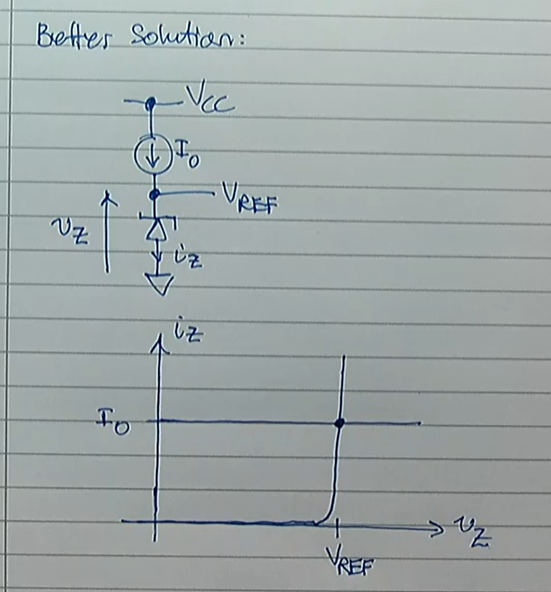 Better Solution:
VCC
I0
VREF
vZ
iZ
iZ
I0
vZ
VREF